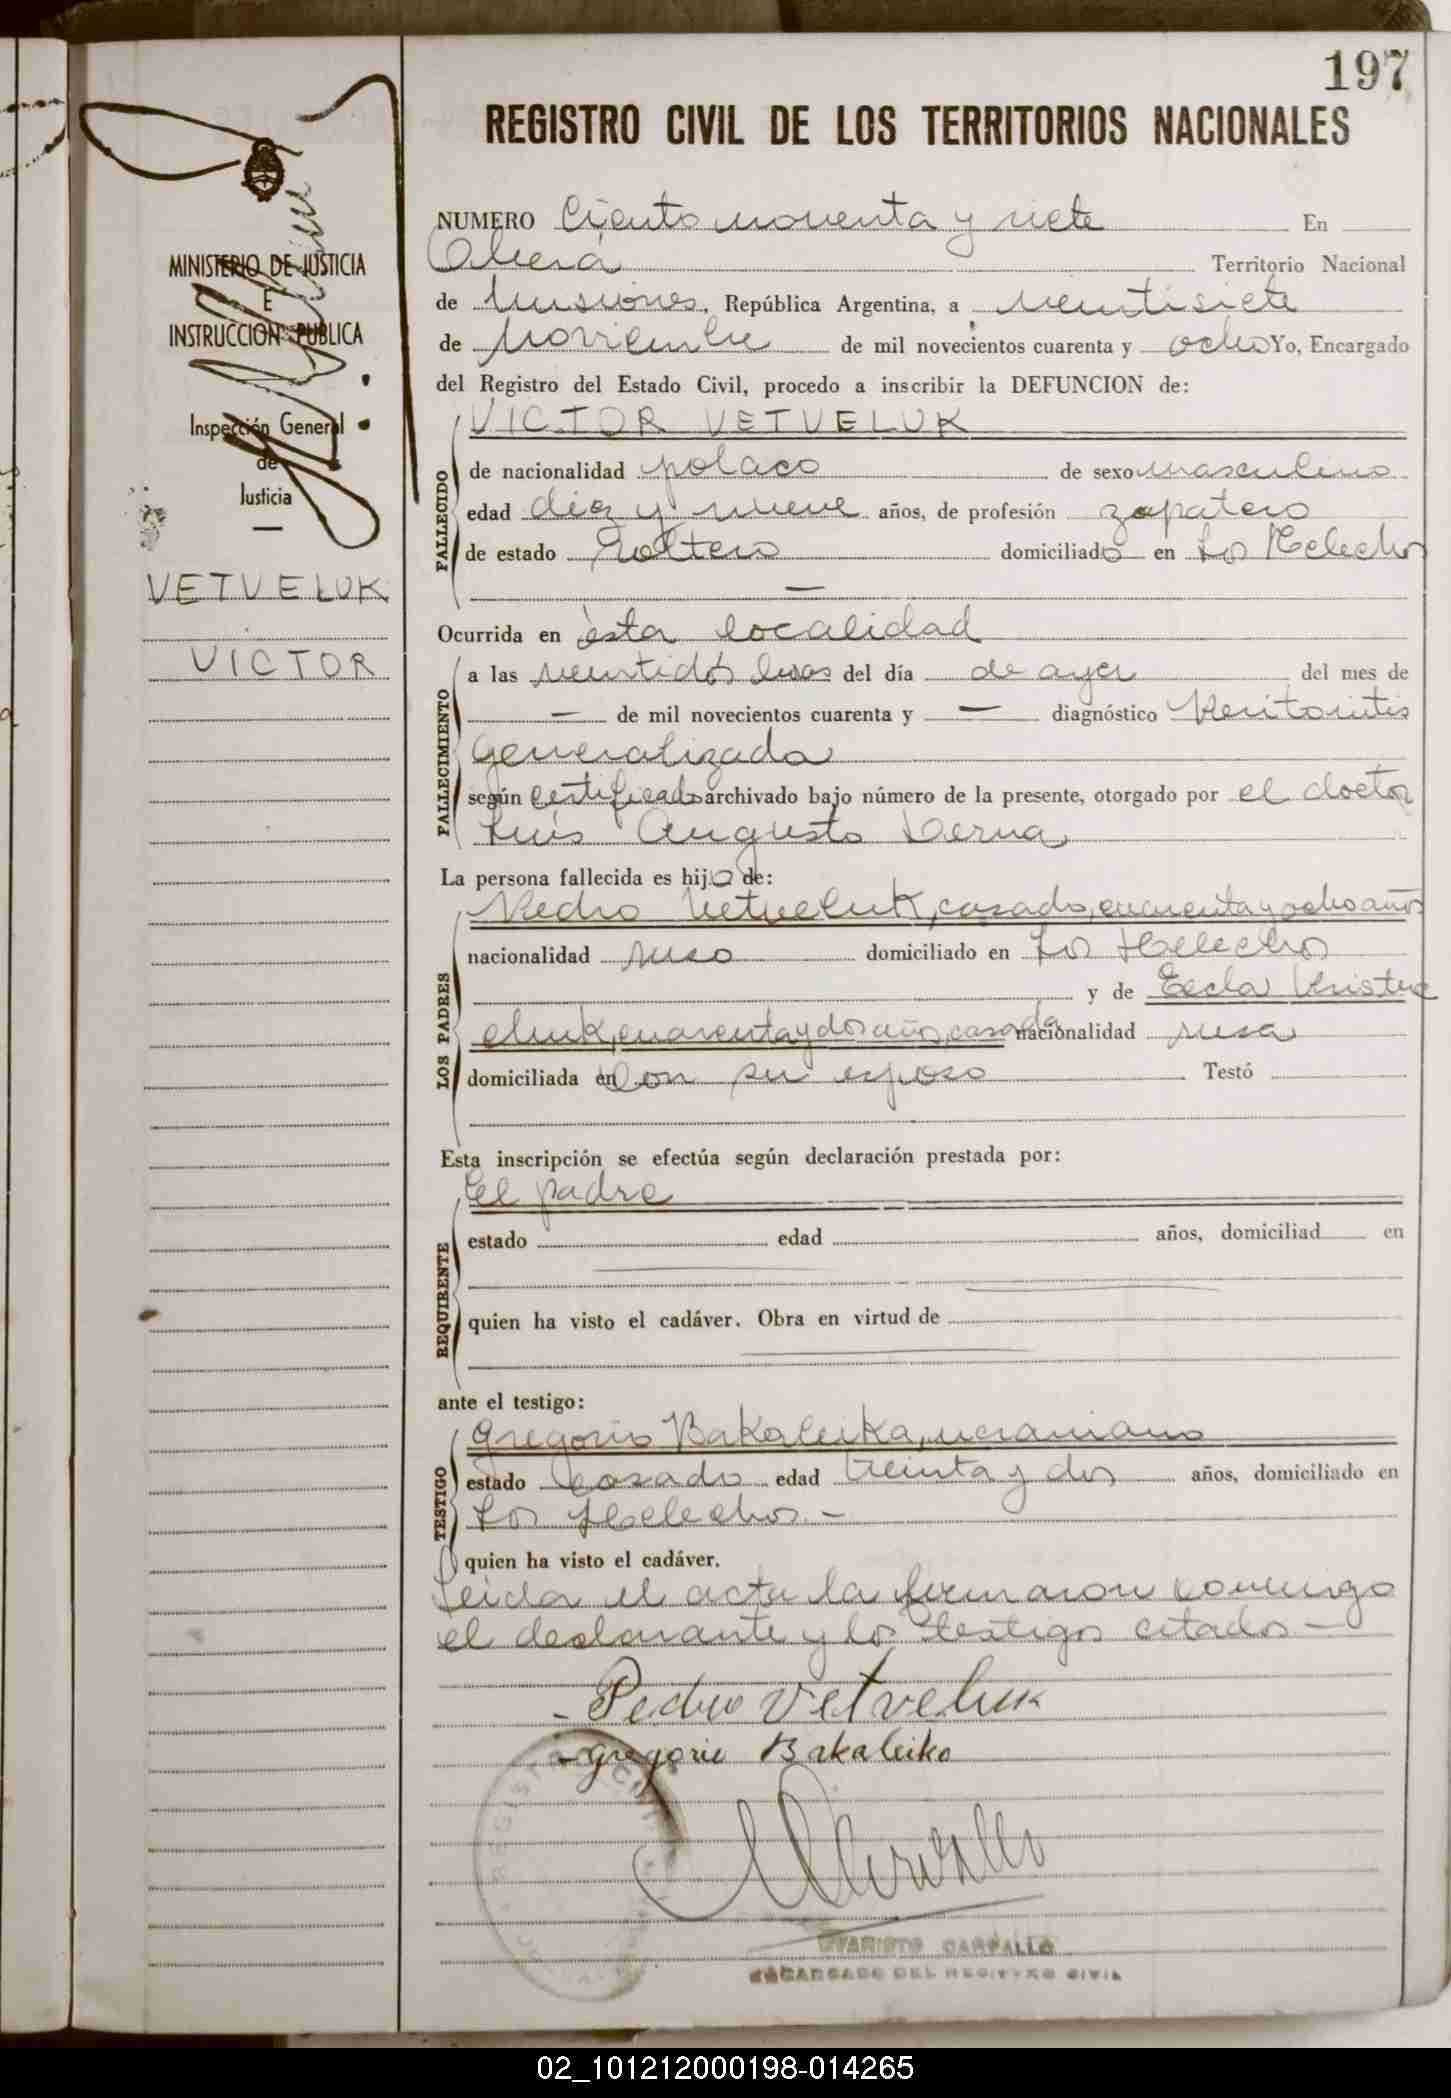 197
REGISTRO CIVIL DE LOS TERRITORIOS NACIONALES
MINISTERIO DE JUSTICIA
E
INSTRUCCION PUBLICA
Inspección General
de
Justicia
VETVELUK
VICTOR
NUMERO Ciento noventa y siete En
Oberá Territorio Nacional
de Misiones, República Argentina, a veintisiete
de Noviembre de mil novecientos cuarenta y ocho Yo, Encargado
del Registro del Estado Civil, procedo a inscribir la DEFUNCION de:
VICTOR VETVELUK
FALLECIDO
de nacionalidad polaco de sexo masculino
edad diez y nueve años, de profesión zapatero
de estado Soltero domiciliado en Los Helechos
—
Ocurrida en ésta localidad
FALLECIMIENTO
a las veintidós horas del día de ayer del mes de
— de mil novecientos cuarenta y — diagnóstico Peritonitis
Generalizada
según Certificado archivado bajo número de la presente, otorgado por el doctor
Luis Augusto Derna
La persona fallecida es hijo de:
LOS PADRES
Pedro Vetveluk, casado, cuarenta y ocho años
nacionalidad ruso domiciliado en Los Helechos
y de Tecla Kristue
chuk, cuarenta y dos años, casada nacionalidad rusa
domiciliada en Con su esposo Testó
Esta inscripción se efectúa según declaración prestada por:
REQUIRENTE
El padre
estado edad años, domiciliad en
quien ha visto el cadáver. Obra en virtud de
ante el testigo:
TESTIGO
Gregorio Bakaleika, ucraniano
estado Casado edad treinta y dos años, domiciliado en
Los Helechos. —
quien ha visto el cadáver.
Leida el acta la firmaron conmigo
el declarante y los testigos citados —
- Pedro Vetveluk
- Gregorio Bakaleiko
REGISTRO CIVIL
EVARISTO CARVALLO
ENCARGADO DEL REGISTRO CIVIL
02_101212000198-014265